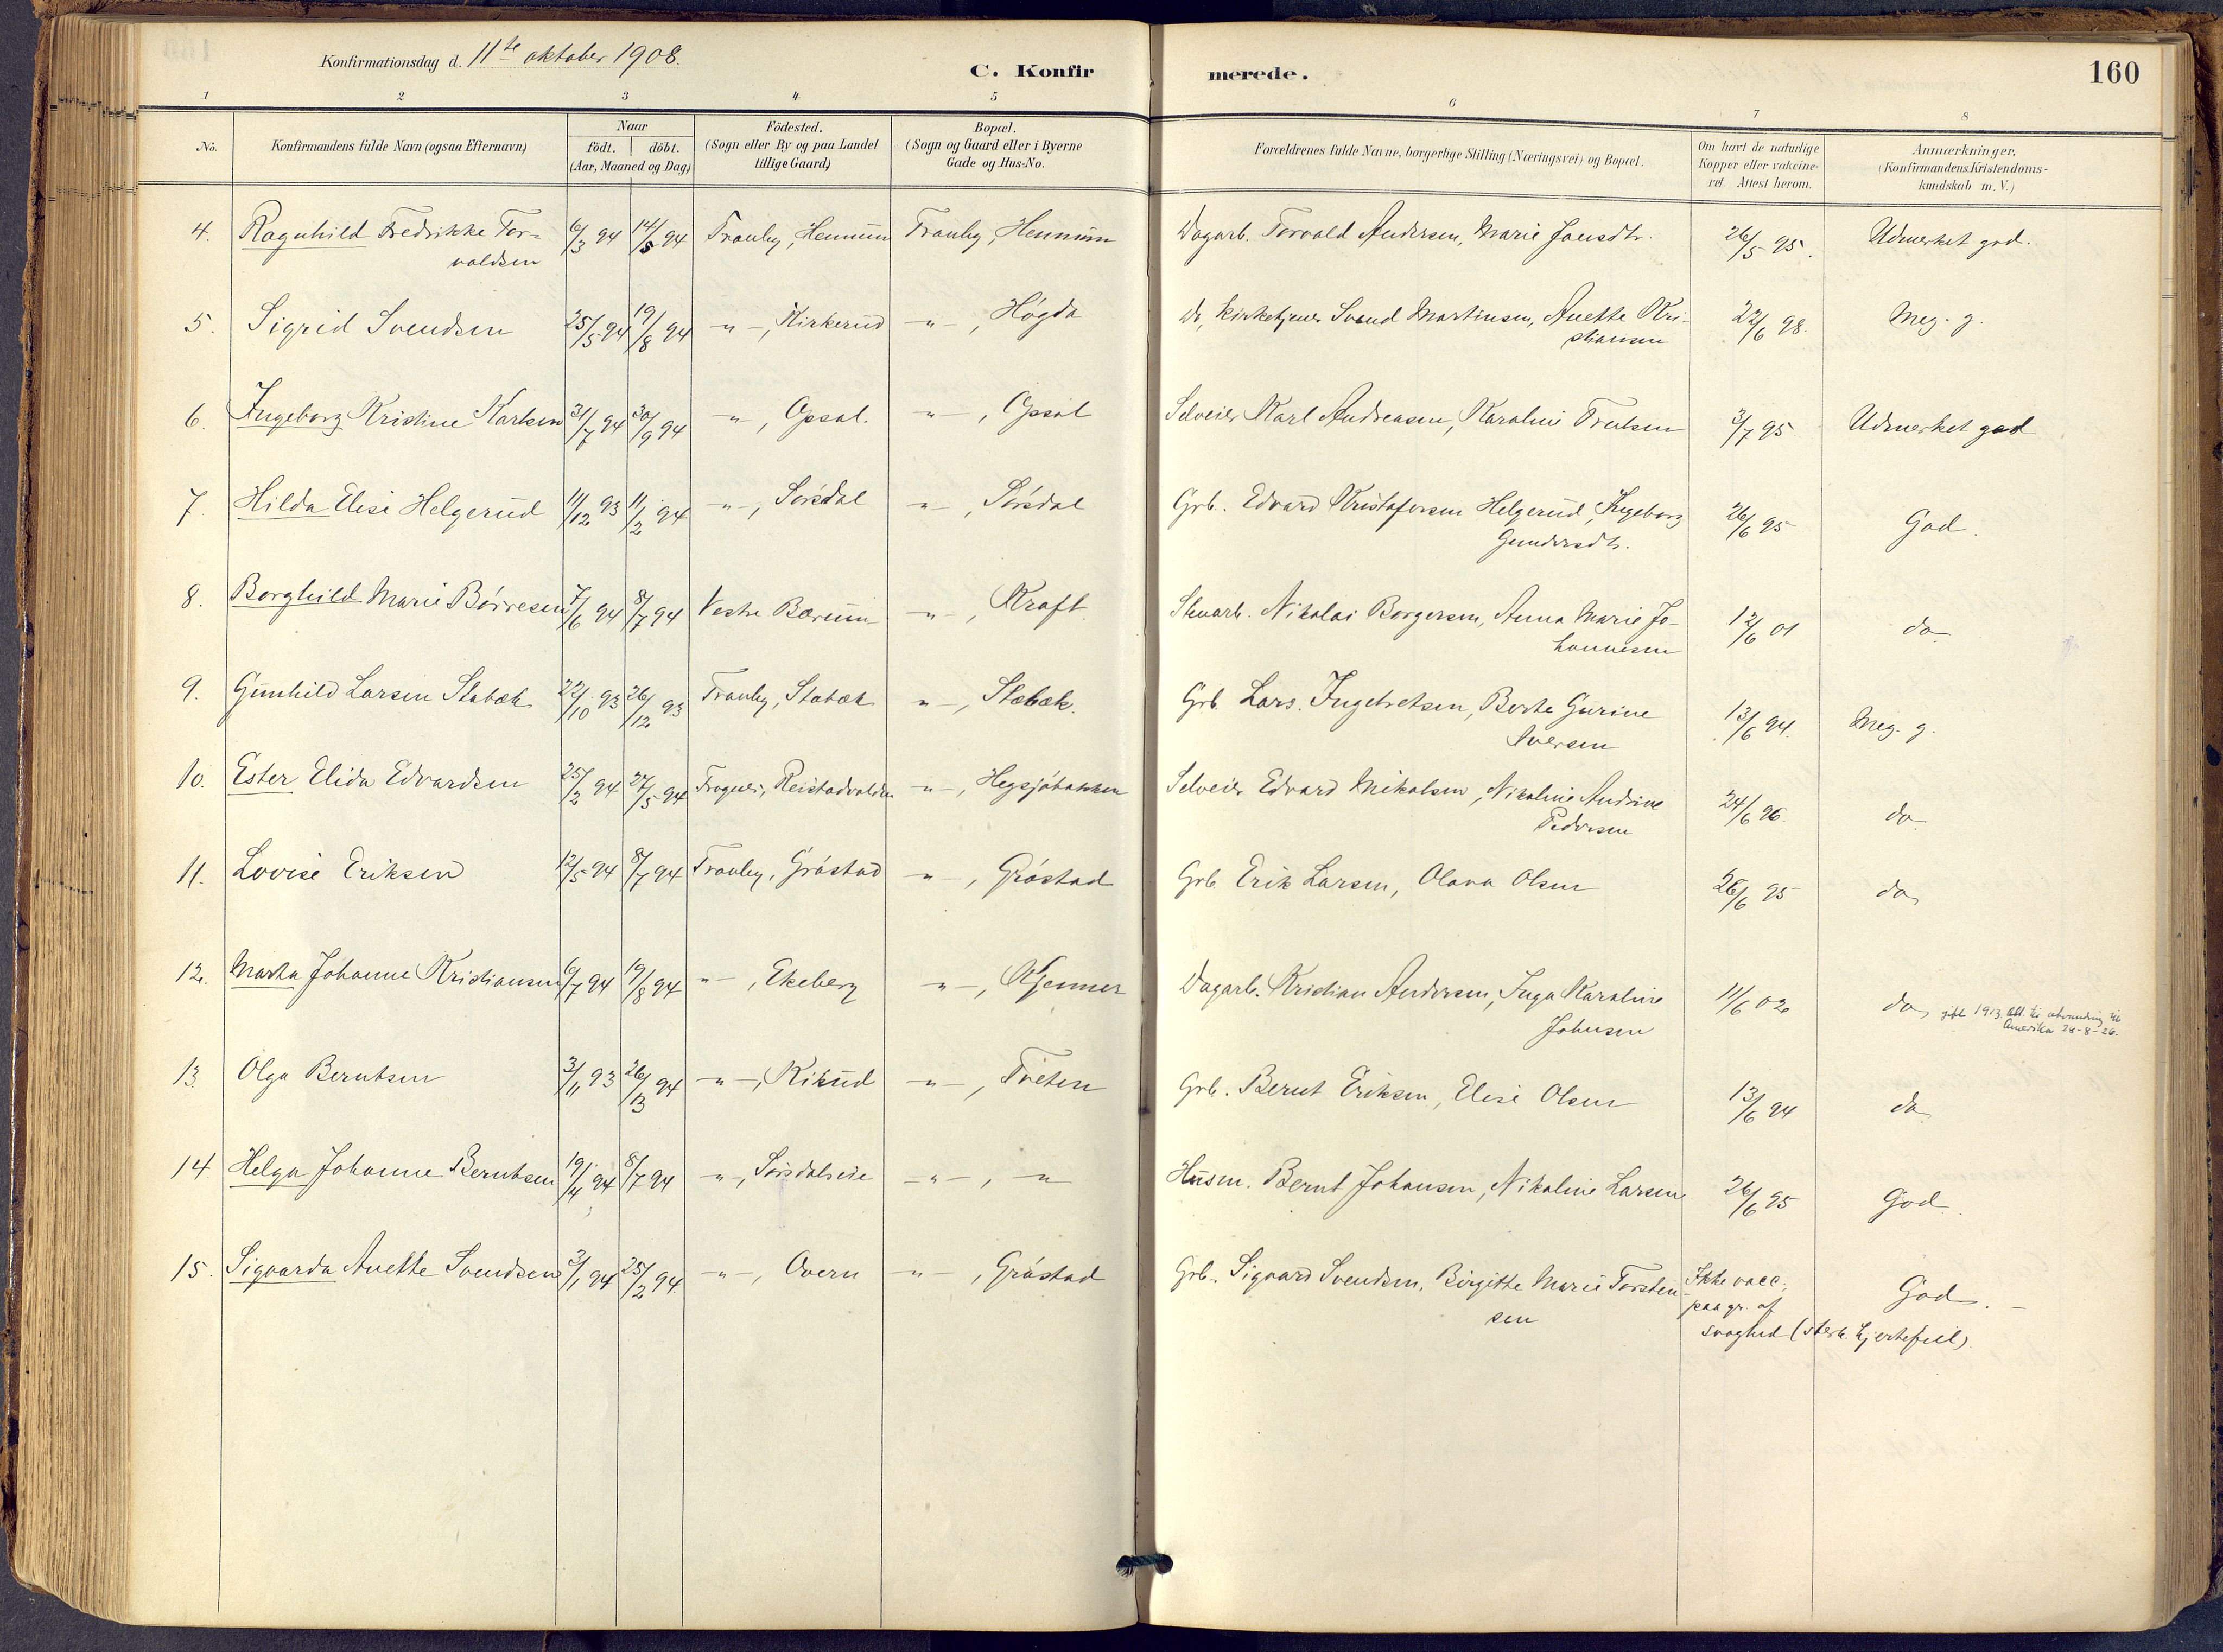 Konfirmationsdag d. 11te oktober 1908.
C. Konfirmerede.
160
1 2 3 4 5 6 7 8
No. Konfirmandens fulde Navn (ogsaa Efternavn) Naar født. døbt. (Aar, Maaned og Dag) Födested. (Sogn eller By og paa Landet tillige Gaard) Bopæl. (Sogn og Gaard eller i Byerne Gade og Hus-No. Forældrenes fulde Navne, borgerlige Stilling (Næringsvei) og Bopæl. Om havt de naturlige Kopper eller vakcineret. Attest herom. Anmærkninger. (Konfirmandens Kristendomskundskab m. V.)
4. Ragnhild Fredrikke Torvaldsen 6/3 94 14/5 94 Tranby, Hennum Tranby, Hennum Dagarb. Torvald Andersen, Marie Jensdtr. 26/5 95. Udmerket god.
5. Sigrid Svendsen 25/5 94 19/8 94 -"-, Kirkerud -"-, Høgda Do, kirketjener Svend Martinsen, Anette Kristiansen 22/6 98. Meg. g.
6. Ingeborg Kristine Karlsen 31/7 94 30/9 94 -"-, Opsal. -"-, Opsal Selveier Karl Andreasen, Karoline Trulsen 3/7 95 Udmerket god
7. Hilda Elise Helgerud 11/12 93 11/2 94 -"-, Sørsdal -"-, Sørsdal Grb. Edvard Kristofersen Helgerud, Ingeborg Gundersdtr. 26/6 95 God.
8. Borghild Marie Børresen 7/6 94 8/7 94 Vestre Bærum -"-, Kraft Stenarb. Nikolai Borgersen, Anna Marie Johannesen 12/6 01 do
9. Gunhild Larsen Stabæk 22/10 93 26/12 93 Tranby, Stabæk -"-, Stabæk. Grb. Lars Ingebretsen, Berte Gurine Iversen 13/6 94. Meg. g.
10. Ester Elida Edvardsen 25/2 94 27/5 94 Frogner, Reistad -"-, Hegsjøbakken Selveier Edvard Mikalsen, Nikoline Andrine Pedersen 24/6 96. do.
11. Lovise Eriksen 12/5 94 8/7 94 Tranby, Grøstad -"-, Grøstad Grb. Erik Larsen, Olava Olsen 26/6 95 do,
12. Marta Johanne Kristiansen 6/7 94 19/8 94 -"-, Ekeberg -"-, Gjennes Dagarb. Kristian Andersen, Inga Karoline Johnsen 11/6 02 do, gift 1913. Att. til utvandring til Amerika 28-8-26.
13. Olga Berntsen 3/11 93 26/13 94 -"-, Kikud -"-, Tveten Grb. Bernt Eriksen, Elise Olsen 13/6 94 do
14. Helga Johanne Berntsen 19/4 94 8/7 94 -"-, Sørsdalseie -"-, -"- Husm. Bernt Johansen, Nikoline Larsen 26/6 95 God.
15. Sigvarda Anette Svendsen 3/1 94 25/2 94 -"-, Overn -"-, Grøstad Grb. Sigvard Svendsen, Birgitte Marie Torstensen Ikke vacc. paa gr. af svaghed (sterk hjertefeil) God.